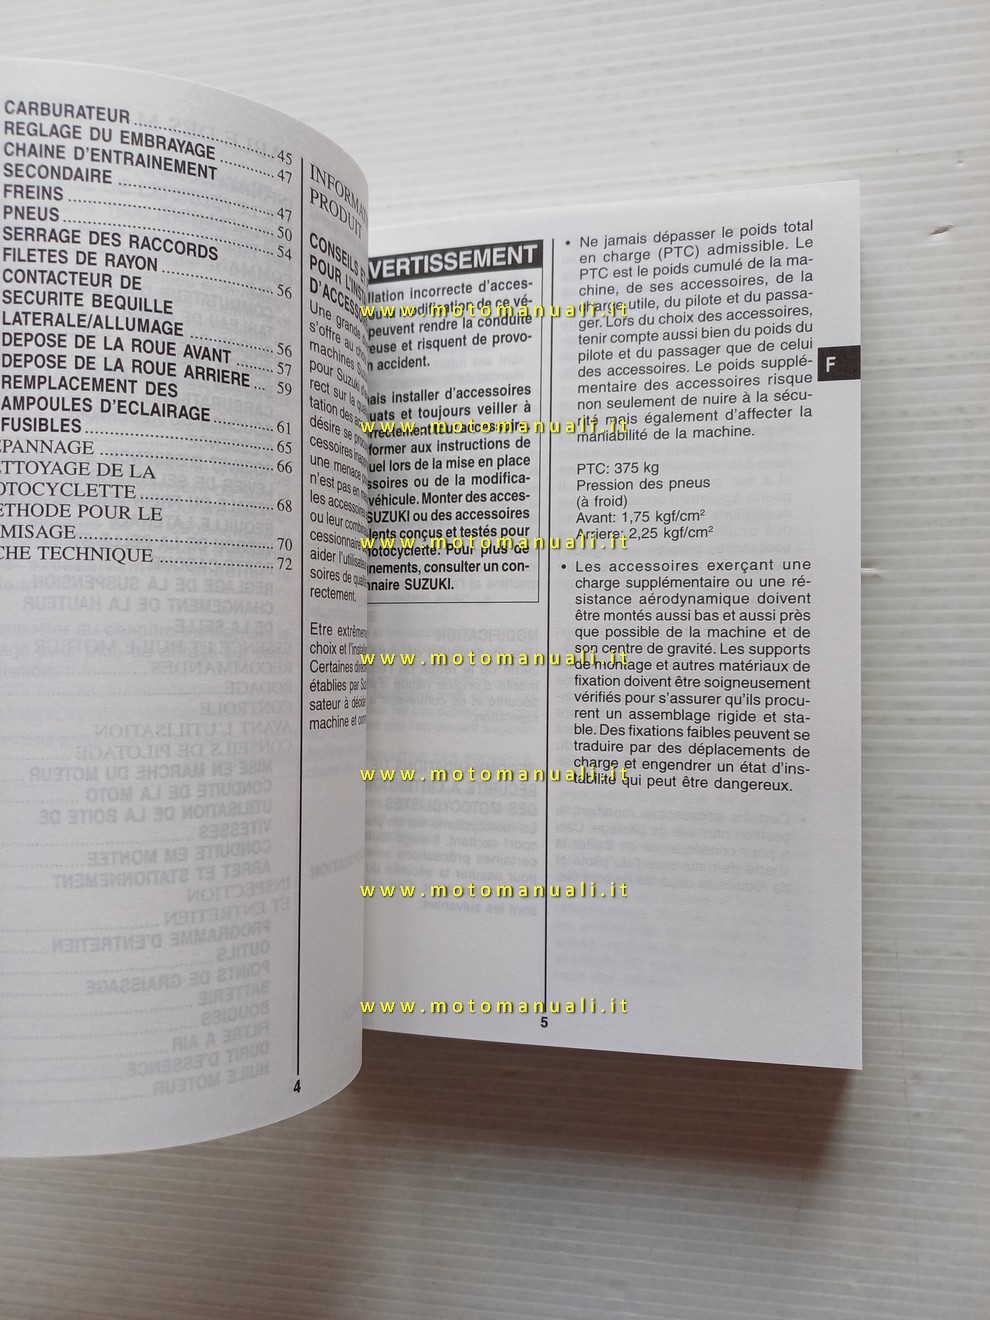 CARBURATEUR ........ 45
REGLAGE DU EMBRAYAGE ........ 47
CHAINE D'ENTRAINEMENT
SECONDAIRE ........ 47
FREINS ........ 50
PNEUS ........ 54
SERRAGE DES RACCORDS
FILETES DE RAYON ........ 56
CONTACTEUR DE
SECURITE BEQUILLE
LATERALE/ALLUMAGE ........ 56
DEPOSE DE LA ROUE AVANT ........ 57
DEPOSE DE LA ROUE ARRIERE ... 59
REMPLACEMENT DES
AMPOULES D'ECLAIRAGE ........ 61
FUSIBLES ........ 65
PANNAGE ........ 66
ETTOYAGE DE LA
OTOCYCLETTE ........ 68
ETHODE POUR LE
MISAGE ........ 70
CHE TECHNIQUE ........ 72
4
INFORMAT
PRODUIT
CONSEILS ET
POUR L'INSTA
D'ACCESSO
Une grande
s'offre au
machines Su
pour Suzuki
rect sur la
tation des
désire se
cessoires
une menace
n'est pas en
les accessoires
ou leur
cessionnaire
aider l'utilisate
soires de
rectement.
Etre extrême
choix et l'instal
Certaines
établies par Su
sateur à
machine et
VERTISSEMENT
llation incorrecte d'acces-
modification de ce vé-
peuvent rendre la conduite
euse et risquent de provo-
n accident.
ais installer d'accessoires
uats et toujours veiller à
former aux instructions de
uel lors de la mise en place
essoires ou de la modifica-
véhicule. Monter des acces-
SUZUKI ou des accessoires
lents conçus et testés pour
otocyclette. Pour plus de
nements, consulter un con-
nnaire SUZUKI.
• Ne jamais dépasser le poids total
en charge (PTC) admissible. Le
PTC est le poids cumulé de la ma-
chine, de ses accessoires, de la
charge utile, du pilote et du passa-
ger. Lors du choix des accessoires,
tenir compte aussi bien du poids du
pilote et du passager que de celui
des accessoires. Le poids supplé-
mentaire des accessoires risque
non seulement de nuire à la sécu-
rité mais également d'affecter la
maniabilité de la machine.
PTC: 375 kg
Pression des pneus
(à froid)
Avant: 1,75 kgf/cm²
Arriere: 2,25 kgf/cm²
• Les accessoires exerçant une
charge supplémentaire ou une ré-
sistance aérodynamique doivent
être montés aussi bas et aussi près
que possible de la machine et de
son centre de gravité. Les supports
de montage et autres matériaux de
fixation doivent être soigneusement
vérifiés pour s'assurer qu'ils procu-
rent un assemblage rigide et sta-
ble. Des fixations faibles peuvent se
traduire par des déplacements de
charge et engendrer un état d'ins-
tabilité qui peut être dangereux.
F
5
www.motomanuali.it
www.motomanuali.it
www.motomanuali.it
www.motomanuali.it
www.motomanuali.it
www.motomanuali.it
www.motomanuali.it